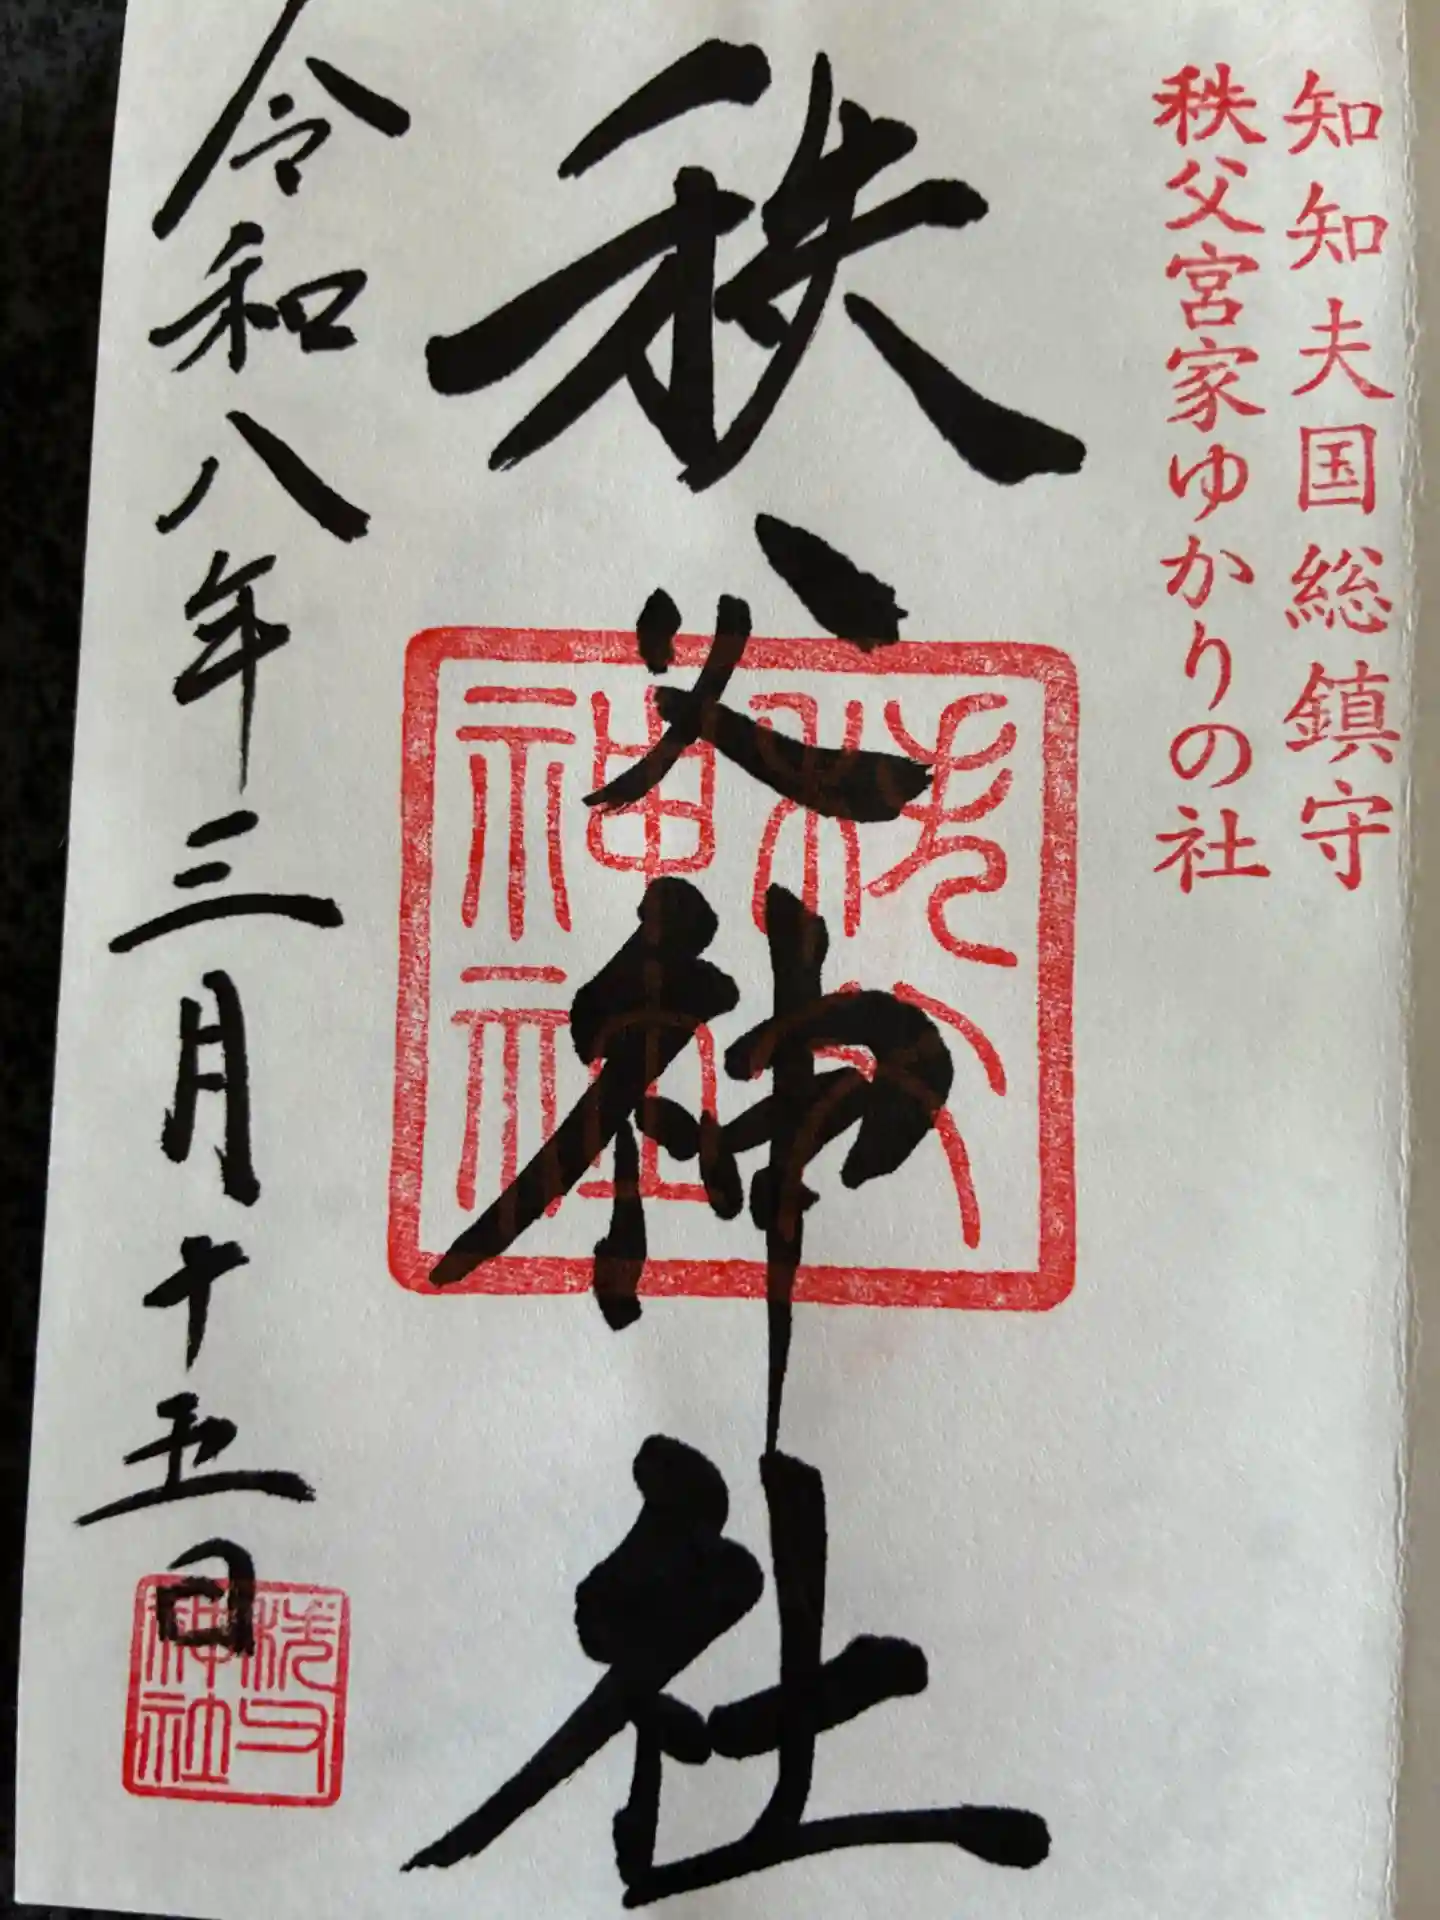 知知夫国総鎮守
秩父宮家ゆかりの社
秩父神社
秩父神社
令和八年三月十五日
秩父神社